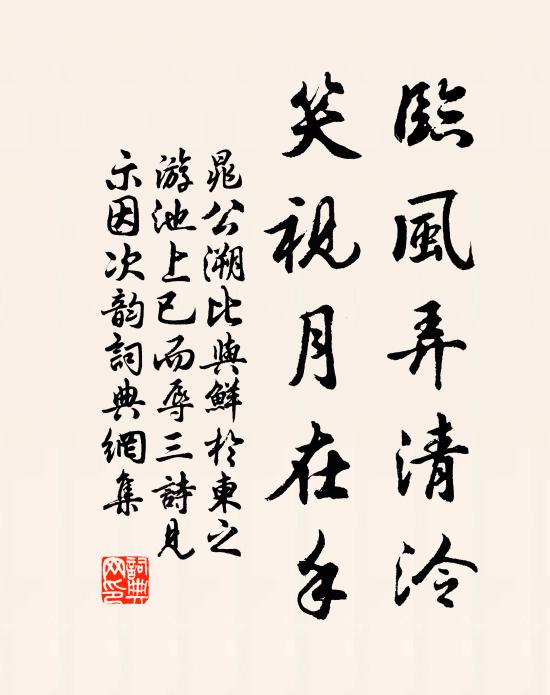 臨風弄清泠
笑視月在手
晁公溯比與鮮於東之
游池上已而辱三詩見
示因次韵詞典網集
詞典网印